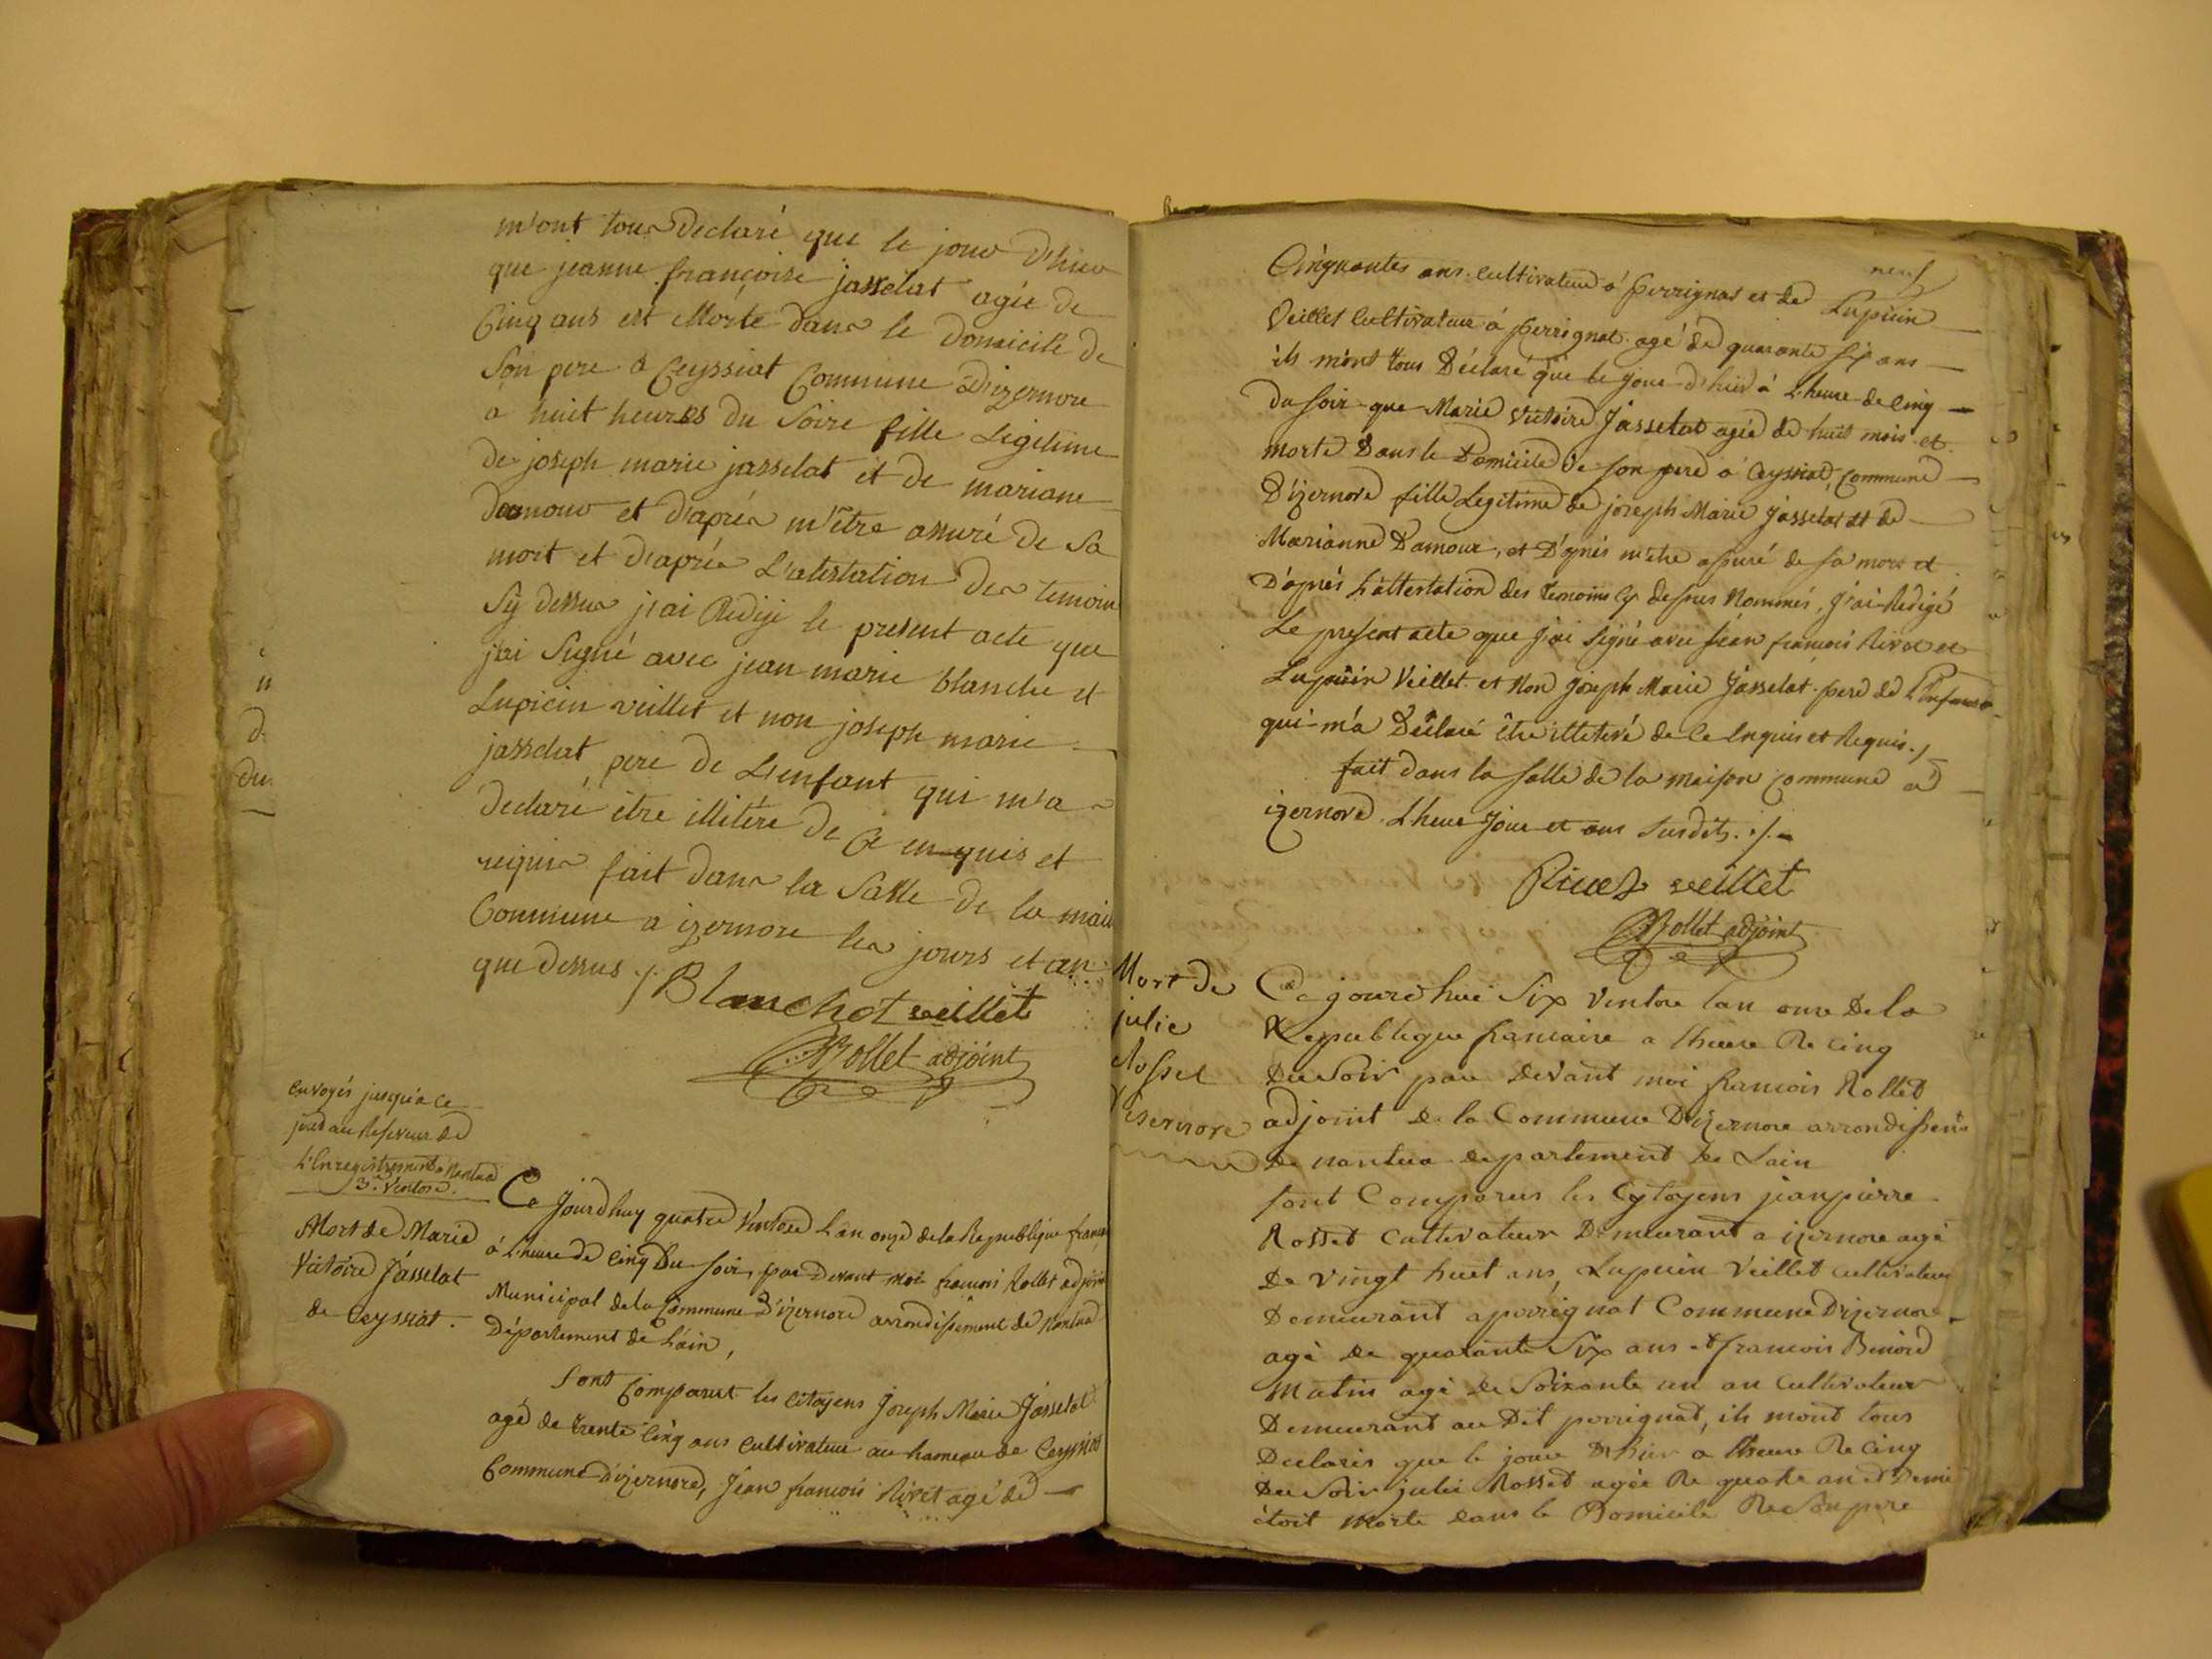 m'ont tous declaré que le jour d'hier
que jeanne françoise jasselat agée de
Cinq ans est Morte dans le domicile de
Son pere a Ceyssiat Commune Dizernore
a huit heures du Soire fille Legitime
de joseph marie jasselat et de mariane
damour et d'aprés m'être assuré de Sa
mort et d'aprés L'atestation des temoin
Sy dessus j'ai Redigé le present acte que
j'ai Signé avec jean marie blanchet et
Lupicin veillet et non joseph marie
jasselat pere de L'enfant qui m'a
declaré être illitéré de Ce enquis et
requis fait dans la Salle de la mais
Commune a izernore les jours et an
que dessus ./.
Blanchot veillet
Rollet adjoint
envoyés jusqu'a ce
jour au Reseveur de
L'Enregistrement a Nantua
3.e Ventose.
Mort de Marie
Victoire Jasselat
de Ceyssiat.
Ce Jourdhuy quatre Ventose L'an onze de la Republique franca
á L'heure de Cinq Du soir, par devant moi francois Rollet adjoin
Municipal de la Commune D'izernore arrondissement de Nantua
Département de L'ain,
Sont Comparut les Citoyens Joseph Marie Jasselat
agé de trente Cinq ans Cultivateur au hameau de Ceyssiat
Commune d'izernore, Jean francois Rivet agé de
neuf
Cinquantes ans Cultivateur á perrignat et de Lupicin
Veillet Cultivateur á perrignat agé de quarante six ans
ils m'ont tous Déclaré que le jour d'hier á L'heure de Cinq
du soir que Marie Victoire Jasselat agée de huit mois et
morte Dans le Domicile de son pere á Ceyssiat, Commune
D'izernore fille Legitime de joseph Marie Jasselat et de
Marianne Damour, et D'aprés m'etre assuré de sa mort et
D'aprés L'attestation des temoins Cy dessus Nommés, J'ai Redigé
Le present acte que J'ai Signé avec Jean francois Rivet et
Lupicin Veillet et Non Joseph Marie Jasselat pere de L'Enfant
qui m'a Déclaré être illeteré de Ce Enquis et Requis ./.
fait dans la salle de la maison Commune a
izernore L'heure Jour et ans Susdits ./.
Rivet veillet
Rollet adjoint
Mort de
julie
Rossel
Disernore
Ce jourdhui Six Ventose lan onze De la
Republique francaise a lheure De Cinq
Du Soir par devant moi francois Rollet
adjoint de la Commune D'izernore arrondissent
de nantua departement de Lain
sont Comparus les Cytoyens jeanpierre
Rosset Cultivateur Demeurant a izernore agé
De Vingt huit ans, Lupicin Veillet Cultivateur
Demeurant a perrignat Commune Dizernore
agé de quarante Six ans et francois
Matin agé de Soixante un an Cultivateur
Demeurant au Dit perrignat, ils mont tous
Declarés que le jour D'hier a lheure De Cinq
Du Soir julie Rosset agée De quatre an et Demi
étoit Morte dans le Domicile De Son pere